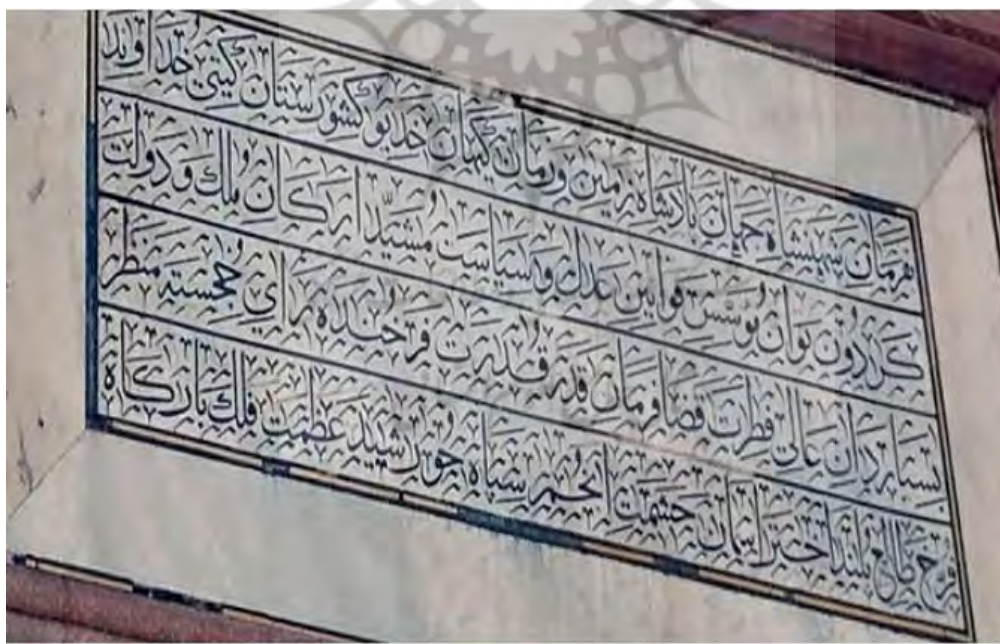 بفرمان شهنشاه جهان بادشاه زمین و زمان کیهان خدیو کشورستان کیتی خداوند
کردون توان مؤسس قوانین عدل و سیاست مشیّد ارکان ملک و دولت
بسیار دان عالی فطرت قضا فرمان قدر قدرت فرخنده رای خجسته منظر
فرخ طالع بلند اختر آسمان حشمت انجم سپاه خورشید عظمت فلک بارکاه